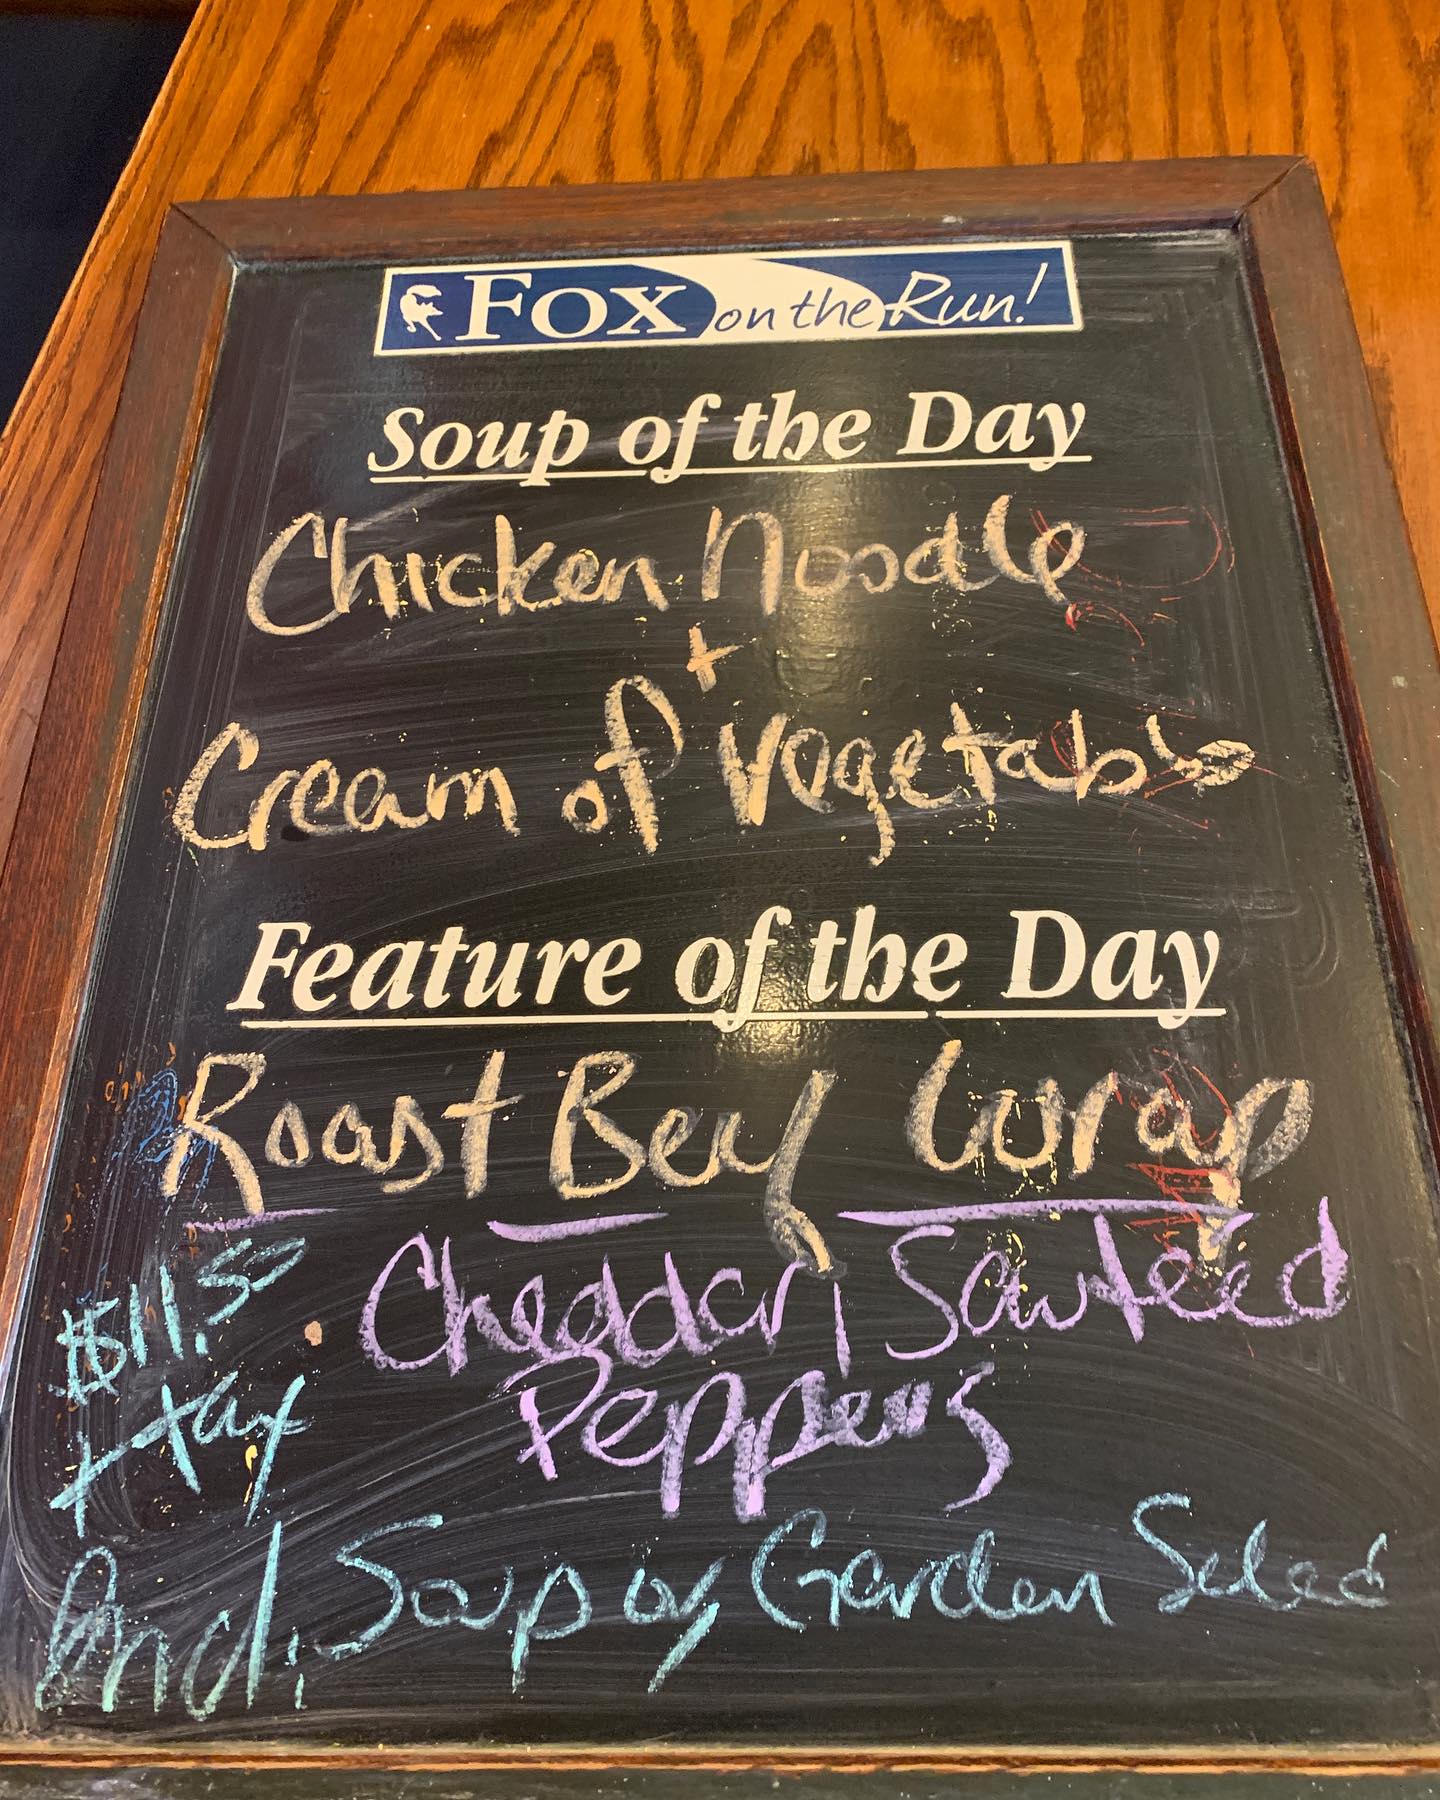 Fox on the Run!
Soup of the Day
Chicken Noodle
+
Cream of Vegetable
Feature of the Day
Roast Beef Wrap
Cheddar, Sauteed
Peppers
$11.50
+ tax
Incl. Soup or Garden Salad